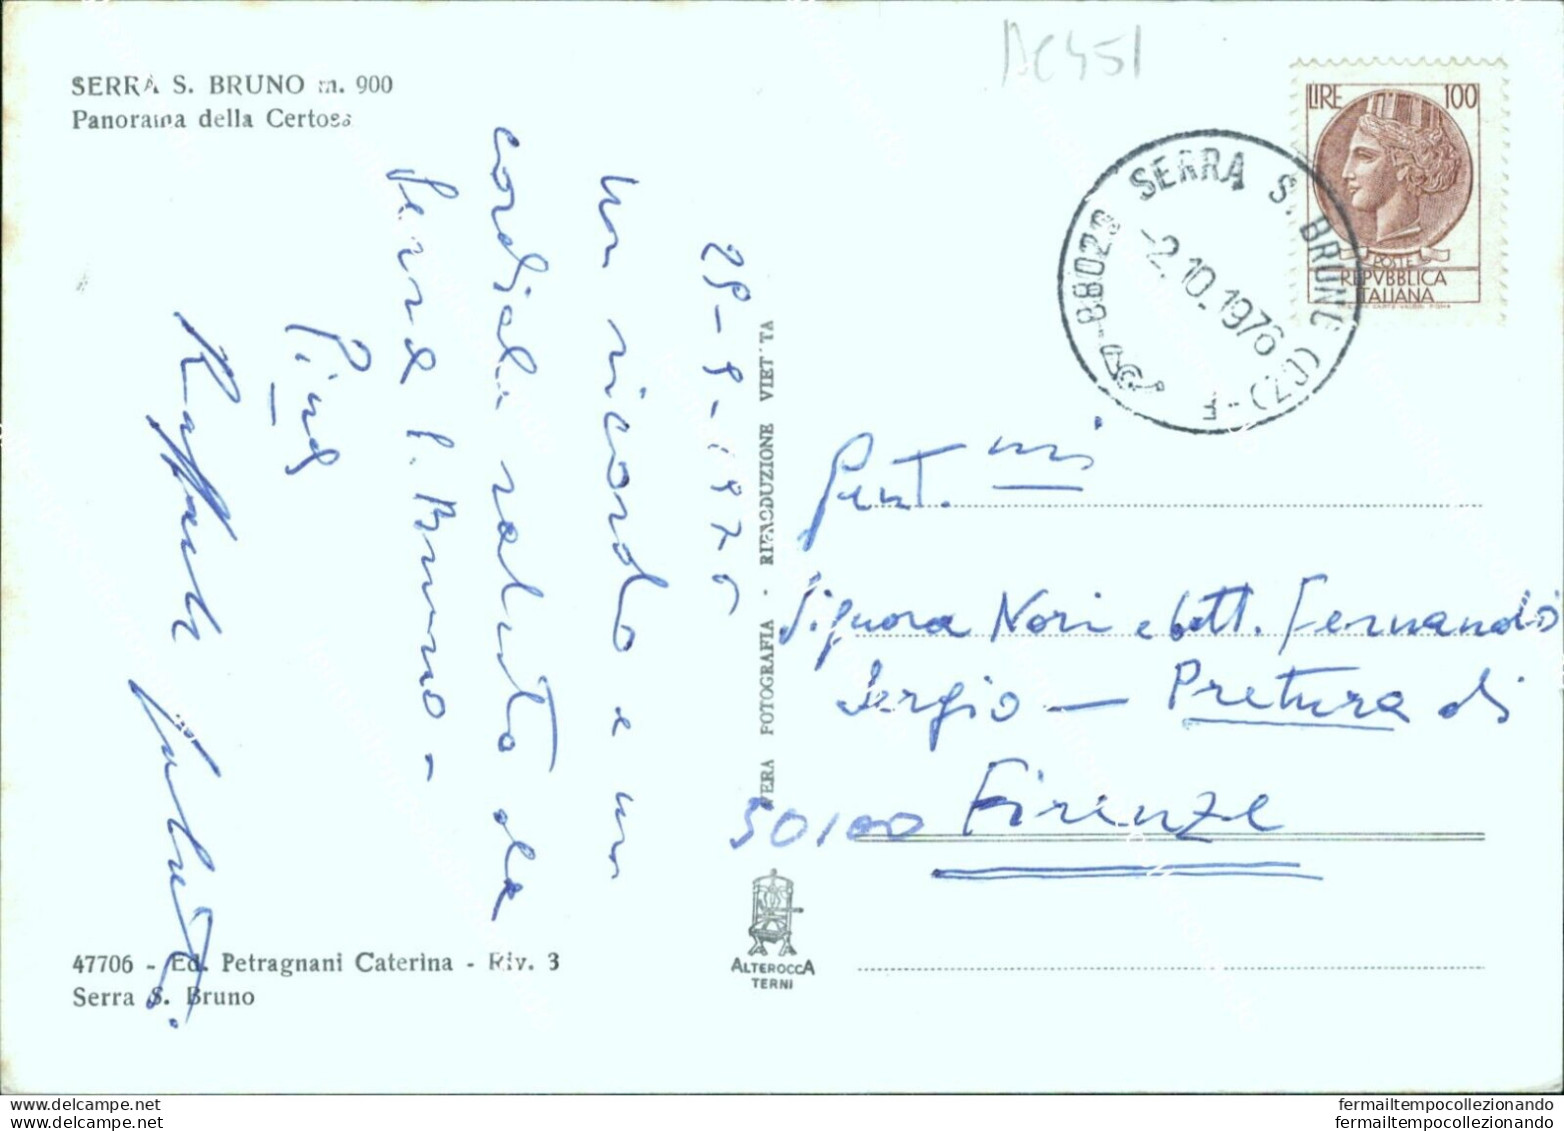 SERRA S. BRUNO m. 900
Panorama della Certosa
Ac451
LIRE 100
POSTE
REPVBBLICA
ITALIANA
SERRA S. BRUNO (CZ)
-2.10.1976
28-9-1976
Un ricordo e un
cordiale saluto da
Serra S. Bruno -
Pina
VERA FOTOGRAFIA - RIPRODUZIONE VIETATA
Gent.mi
Signora Nori e Dott. Fernando
Sergio — Pretura di
50100 Firenze
47706 - Ed. Petragnani Caterina - Riv. 3
Serra S. Bruno
ALTEROCCA
TERNI
fermailtempocollezionando
fermailtempocollezionando
fermailtempocollezionando
fermailtempocollezionando